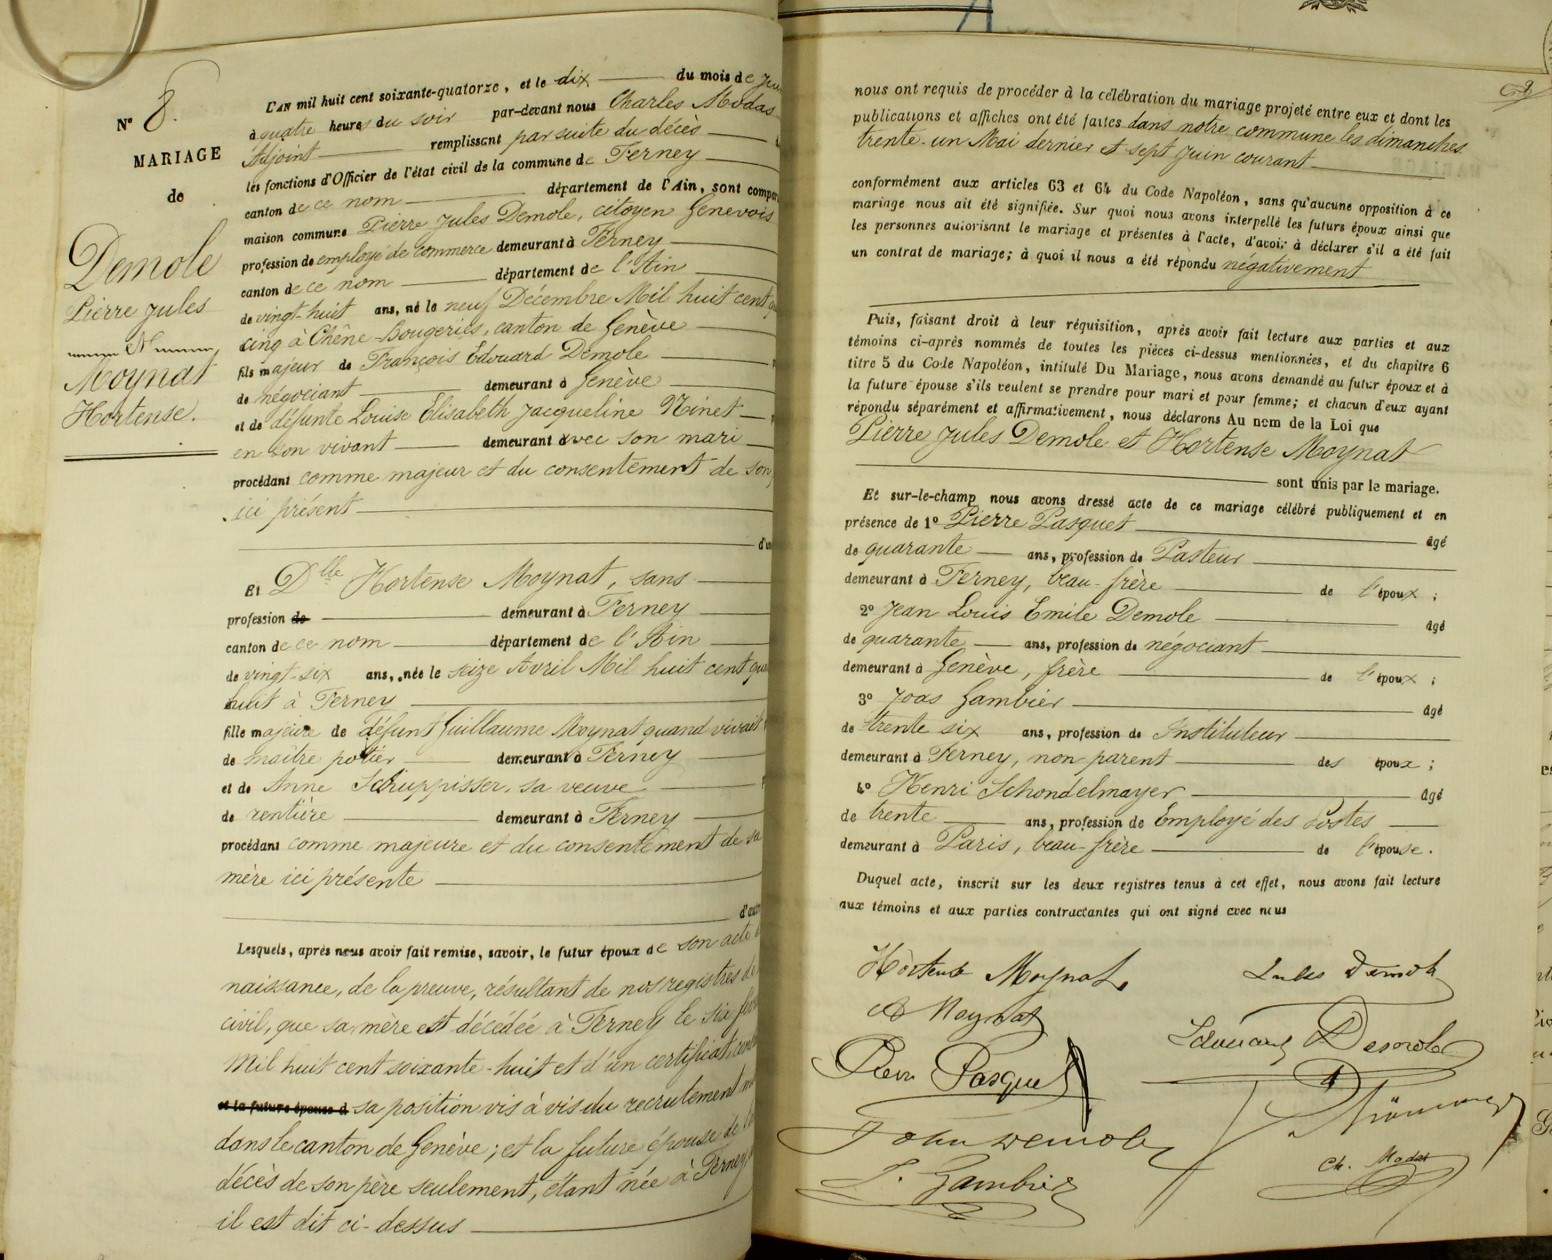 N° 8.
MARIAGE
de
Demole
Pierre Jules
N
Moynat
Hortense.
L'AN mil huit cent soixante-quatorze, et le dix du mois de
à quatre heures du soir par-devant nous Charles Modas
Adjoint remplissant par suite du décès
les fonctions d'Officier de l'état civil de la commune de Ferney
canton de ce nom département de l'Ain, sont
maison commune Pierre Jules Demole, citoyen Genevois
profession de employé de commerce demeurant à Ferney
canton de ce nom département de l'Ain
de vingt-huit ans, né le neuf Décembre Mil huit cent
cinq à Chêne-Bougeries, canton de Genève
fils majeur de François Edouard Demole
de négociant demeurant à Genève
et de défunte Louise Elisabeth Jacqueline Ninet
en son vivant demeurant avec son mari
procédant comme majeur et du consentement de son
ici présent
Et Dlle Hortense Moynat, sans
profession de demeurant à Ferney
canton de ce nom département de l'Ain
de vingt-six ans, née le seize Avril Mil huit cent
huit à Ferney
fille majeure de défunt Guillaume Moynat quand vivait
de maître potier demeurant à Ferney
et de Anne Schruppisser, sa veuve
de rentière demeurant à Ferney
procédant comme majeure et du consentement de sa
mère ici présente
Lesquels, après nous avoir fait remise, savoir, le futur époux de son acte
naissance, de la preuve, résultant de nos registres de
civil, que sa mère est décédée à Ferney le six
Mil huit cent soixante-huit et d'un certificat
et la future épouse d sa position vis à vis du recrutement
dans le canton de Genève; et la future épouse de
décès de son père seulement, étant née à Ferney
il est dit ci-dessus
nous ont requis de procéder à la célébration du mariage projeté entre eux et dont les
publications et affiches ont été faites dans notre commune les dimanches
trente-un Mai dernier et sept Juin courant
conformément aux articles 63 et 64 du Code Napoléon, sans qu'aucune opposition à ce
mariage nous ait été signifiée. Sur quoi nous avons interpellé les futurs époux ainsi que
les personnes autorisant le mariage et présentes à l'acte, d'avoir à déclarer s'il a été fait
un contrat de mariage; à quoi il nous a été répondu négativement
Puis, faisant droit à leur réquisition, après avoir fait lecture aux parties et aux
témoins ci-après nommés de toutes les pièces ci-dessus mentionnées, et du chapitre 6
titre 5 du Code Napoléon, intitulé Du Mariage, nous avons demandé au futur époux et à
la future épouse s'ils veulent se prendre pour mari et pour femme; et chacun d'eux ayant
répondu séparément et affirmativement, nous déclarons Au nom de la Loi que
Pierre Jules Demole et Hortense Moynat
sont unis par le mariage.
Et sur-le-champ nous avons dressé acte de ce mariage célébré publiquement et en
présence de 1° Pierre Pasquet âgé
de quarante ans, profession de Pasteur
demeurant à Ferney, beau-frère de l'époux;
2° Jean Louis Emile Demole âgé
de quarante ans, profession de négociant
demeurant à Genève, frère de l'époux;
3° Joas Gambier âgé
de trente six ans, profession de Instituteur
demeurant à Ferney, non parent des époux;
4° Henri Schondelmayer âgé
de trente ans, profession de Employé des postes
demeurant à Paris, beau-frère de l'épouse.
Duquel acte, inscrit sur les deux registres tenus à cet effet, nous avons fait lecture
aux témoins et aux parties contractantes qui ont signé avec nous
Hortense Moynat Jules Demole
A Moynat
Edouard Demole
Pierre Pasquet
John Demole
Ch. Modas
J. Gambier